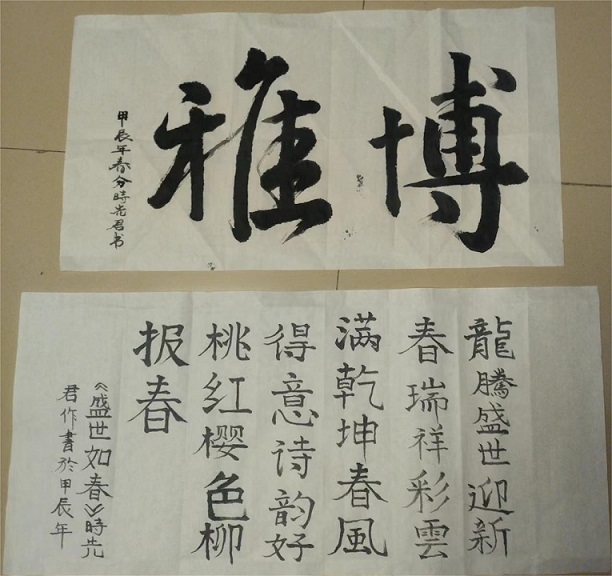 博雅
甲辰年春分時光君书
龍騰盛世迎新
春瑞祥彩雲
满乾坤春風
得意诗韵好
桃红樱色柳
报春
《盛世如春》時光
君作書於甲辰年